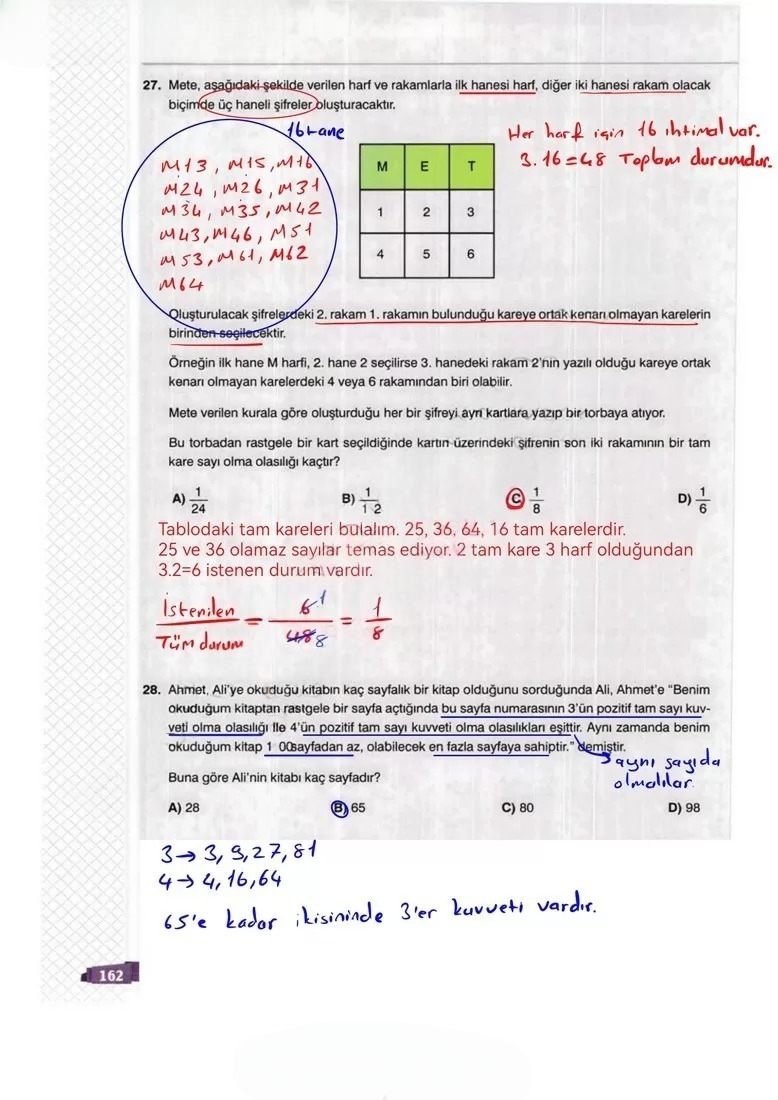 27. Mete, aşağıdaki şekilde verilen harf ve rakamlarla ilk hanesi harf, diğer iki hanesi rakam olacak
biçimde üç haneli şifreler oluşturacaktır.
16 tane
Her harf için 16 ihtimal var.
3.16=48 Toplam durumdur.
M13, M15, M16
M24, M26, M31
M34, M35, M42
M43, M46, M51
M53, M61, M62
M64
M E T
1 2 3
4 5 6
Oluşturulacak şifrelerdeki 2. rakam 1. rakamın bulunduğu kareye ortak kenarı olmayan karelerin
birinden seçilecektir.
Örneğin ilk hane M harfi, 2. hane 2 seçilirse 3. hanedeki rakam 2'nin yazılı olduğu kareye ortak
kenarı olmayan karelerdeki 4 veya 6 rakamından biri olabilir.
Mete verilen kurala göre oluşturduğu her bir şifreyi ayrı kartlara yazıp bir torbaya atıyor.
Bu torbadan rastgele bir kart seçildiğinde kartın üzerindeki şifrenin son iki rakamının bir tam
kare sayı olma olasılığı kaçtır?
A) 1/24 B) 1/12 C) 1/8 D) 1/6
Tablodaki tam kareleri bulalım. 25, 36, 64, 16 tam karelerdir.
25 ve 36 olamaz sayılar temas ediyor. 2 tam kare 3 harf olduğundan
3.2=6 istenen durum vardır.
İstenilen/Tüm durum = 6 1/48 8 = 1/8
28. Ahmet, Ali'ye okuduğu kitabın kaç sayfalık bir kitap olduğunu sorduğunda Ali, Ahmet'e "Benim
okuduğum kitaptan rastgele bir sayfa açtığında bu sayfa numarasının 3'ün pozitif tam sayı kuv-
veti olma olasılığı ile 4'ün pozitif tam sayı kuvveti olma olasılıkları eşittir. Aynı zamanda benim
okuduğum kitap 1 00sayfadan az, olabilecek en fazla sayfaya sahiptir." demiştir.
aynı sayıda
olmalılar.
Buna göre Ali'nin kitabı kaç sayfadır?
A) 28 B) 65 C) 80 D) 98
3→3, 9, 27, 81
4→4, 16, 64
65'e kadar ikisininde 3'er kuvveti vardır.
162